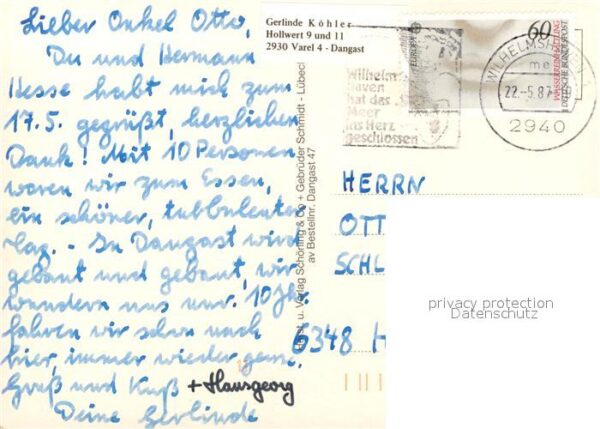 Lieber Onkel Otto,
Du und Hermann
Hesse habt mich zum
17.5. gegrüßt, herzlichen
Dank! Mit 10 Personen
waren wir zum Essen,
ein schöner, turbulenter
Tag. - In Dangast wird
gebaut und gebaut, wir
wundern uns nur. 10 Jhr.
fahren wir schon nach
hier, immer wieder gern.
Gruß und Kuß + Hansgeorg
Deine Gerlinde
Gerlinde Köhler
Hollwert 9 und 11
2930 Varel 4 - Dangast
u. Verlag Schöning & Co + Gebrüder Schmidt - Lübeck
Bestellnr. Dangast 47
Wilhelms-
haven
hat das
Meer
ins Herz
geschlossen
EUROPA
60
DEUTSCHE BUNDESPOST
WILHELMSH
me
22.-5.87
2940
HERRN
OTT
SCHL
6348 H
privacy protection
Datenschutz